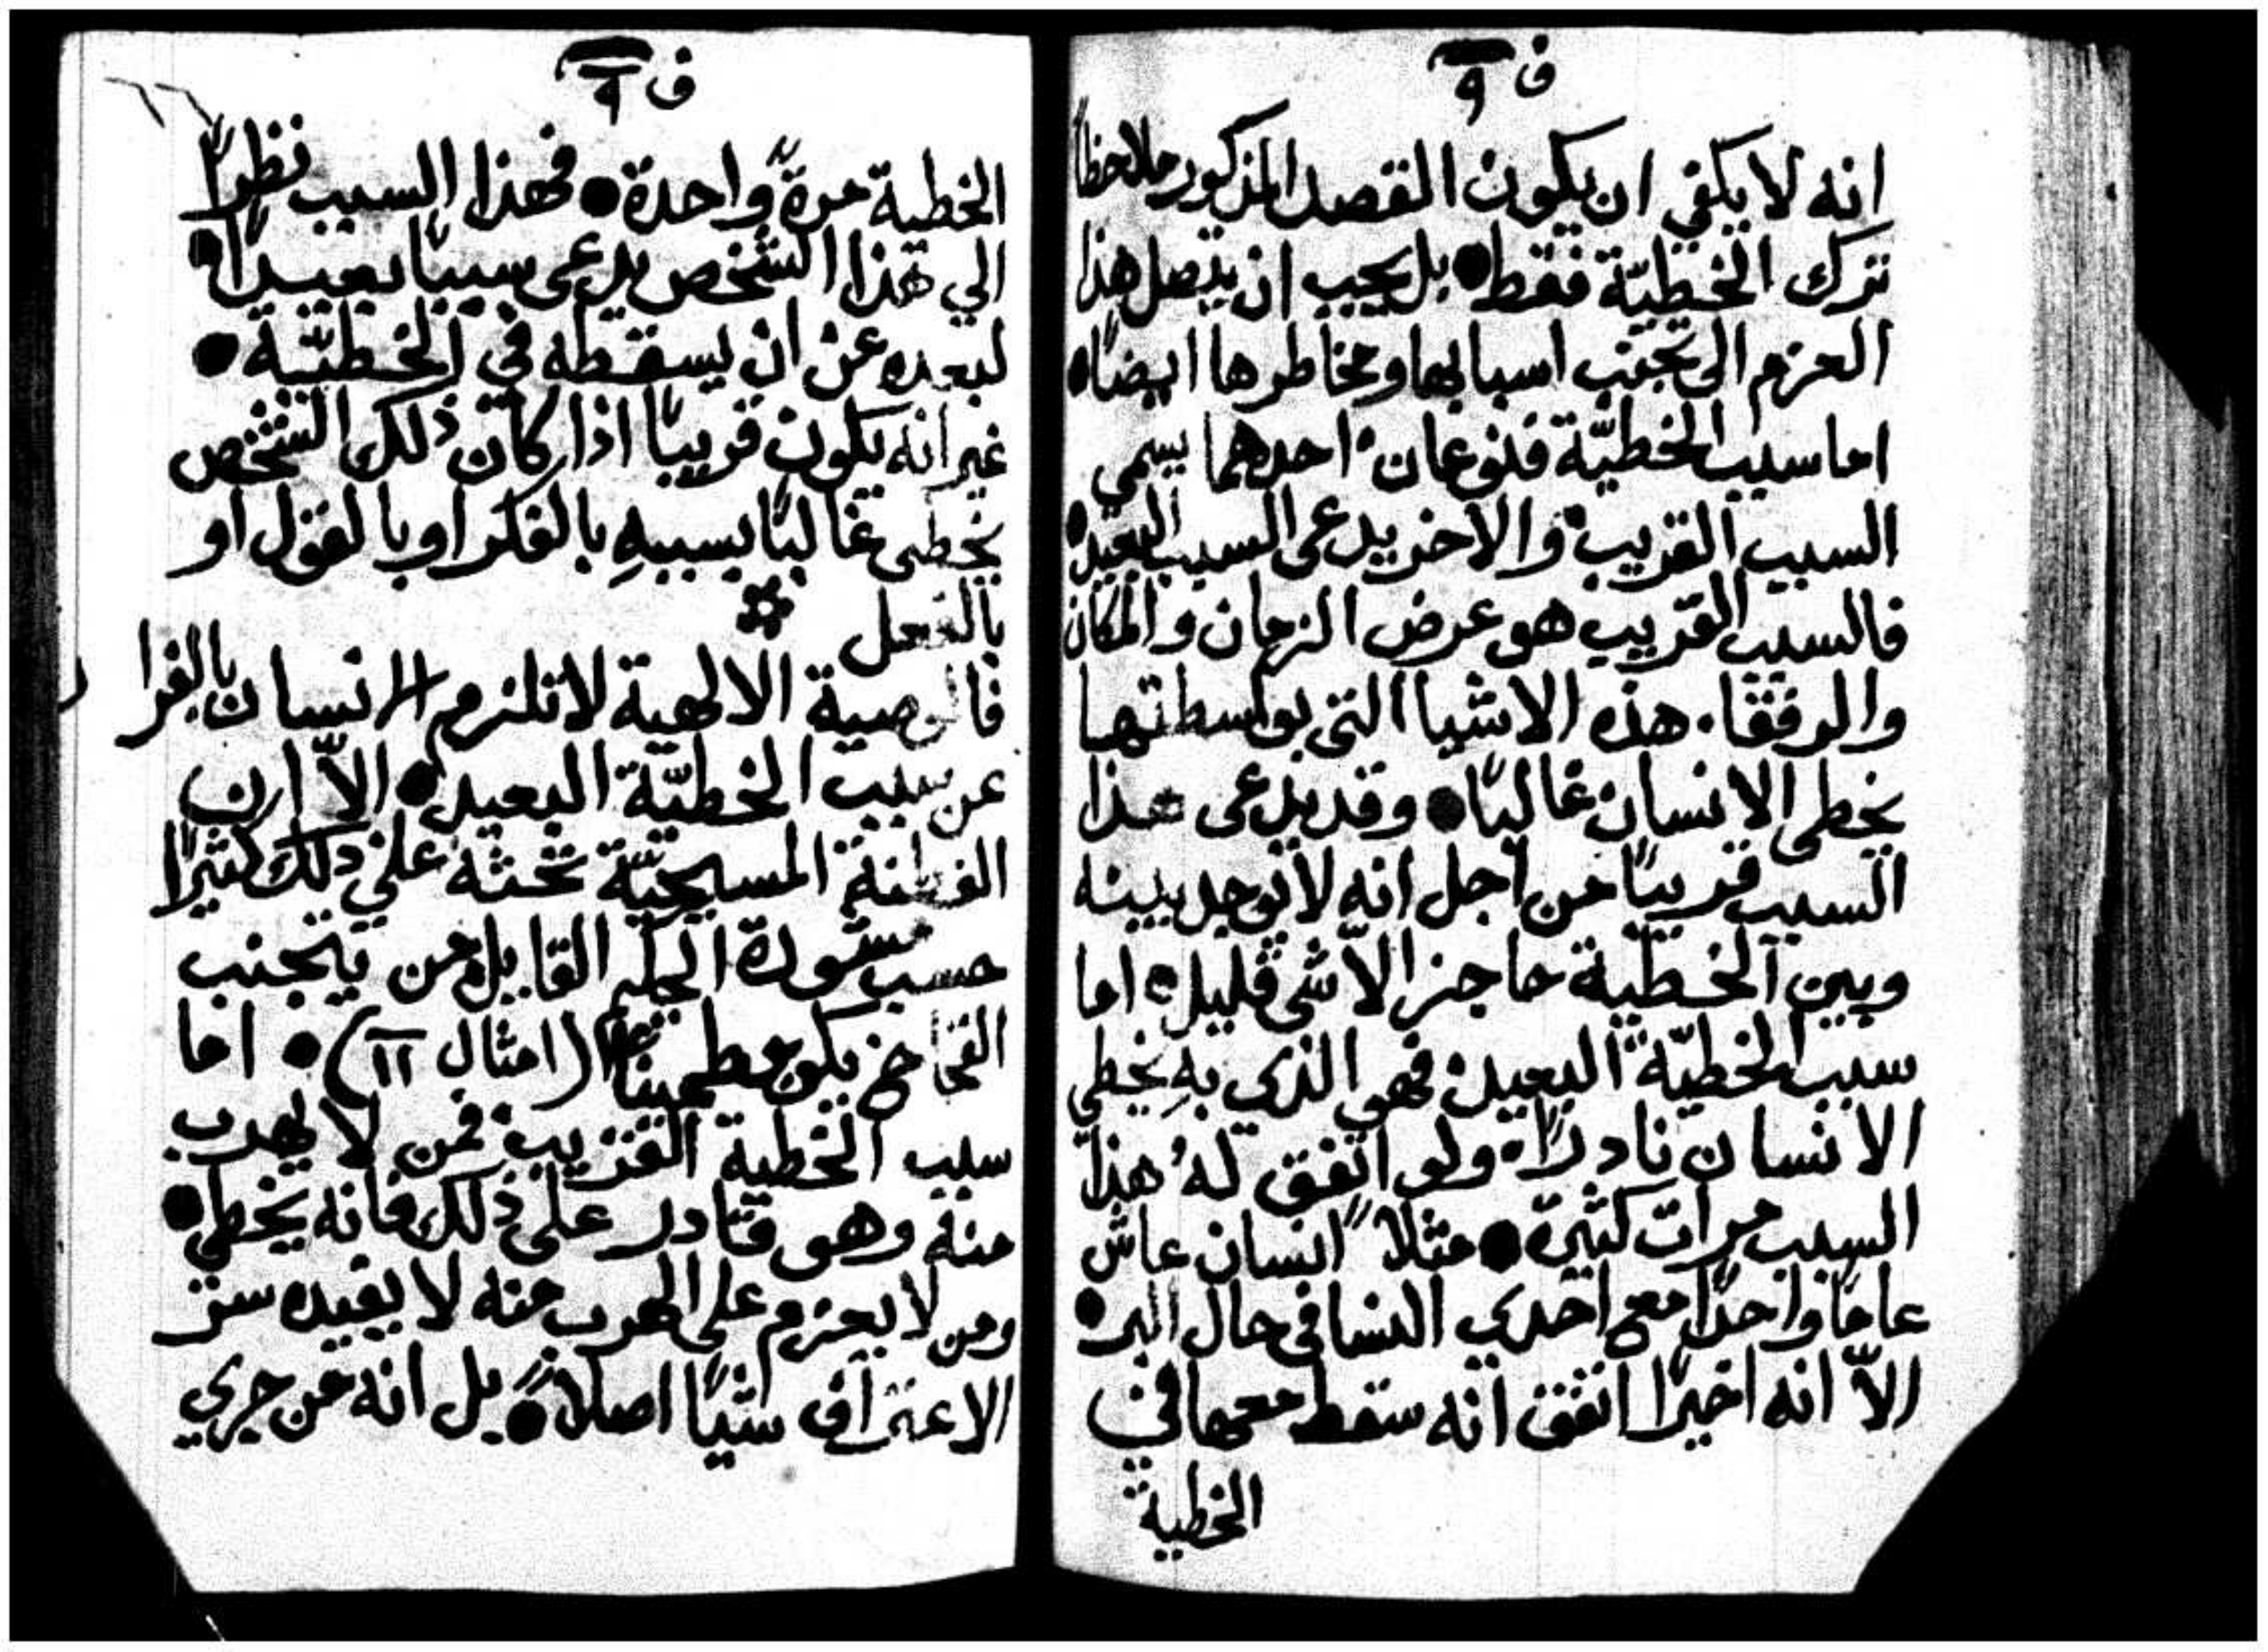 ف ٩
انه لا يكفي ان يكون القصد المذكور ملاحظاً
ترك الخطيّة فقط ● بل يجب ان يتصل هذا
العزم الى تجنب اسبابها ومخاطرها ايضاً ●
اما سبب الخطيّة فنوعان احدهما يسمي
السبب القريب والاخر يدعى السبب البعيد
فالسبب القريب هو عرض الزمان والمكان
والرفقا. هذه الاشيا التي بواسطتها
يخطى الانسان غالباً ● وقد يدعى هذا
السبب قريباً من اجل انه لا يوجد بينه
وبين الخطيّة حاجز الاّ شى قليل ● اما
سبب الخطيّة البعيد فهو الذي بهِ يخطي
الانسان نادراً ولو اتفق لهُ هذا
السبب مرات كثيرة ● مثلاً انسان عاش
عاماً واحداً مع احدي النسا في حال البر ●
الاّ انه اخيراً اتفق انه سقط معها في
الخطية
ف ٩
الخطية مرةً واحدة ● فهذا السبب نظراً
الي هذا الشخص يدعى سبباً بعيداً ●
لبعده عن ان يسقطه في الخطيّة ●
غير انه يكون قريباً اذا كان ذلك الشخص
يخطى غالباً بسببهِ بالفكر او بالقول او
بالفعل
فالوصية الالهية لا تلزم الانسان بالفرار
عن سبب الخطيّة البعيد ● الاّ ان
الفطنة المسيحيّة تحثه علي ذلك كثيراً
حسب مشورة الحكيم القايل من يتجنب
الفخاخ يكون مطميناً (امثال ١١) ● اما
سبب الخطية القريب فمن لا يهرب
منه وهو قادر على ذلك فانه يخطي ●
ومن لا يعزم على الهرب منه لا يفيده سر
الاعتراف شياً اصلاً ● بل انه من جري